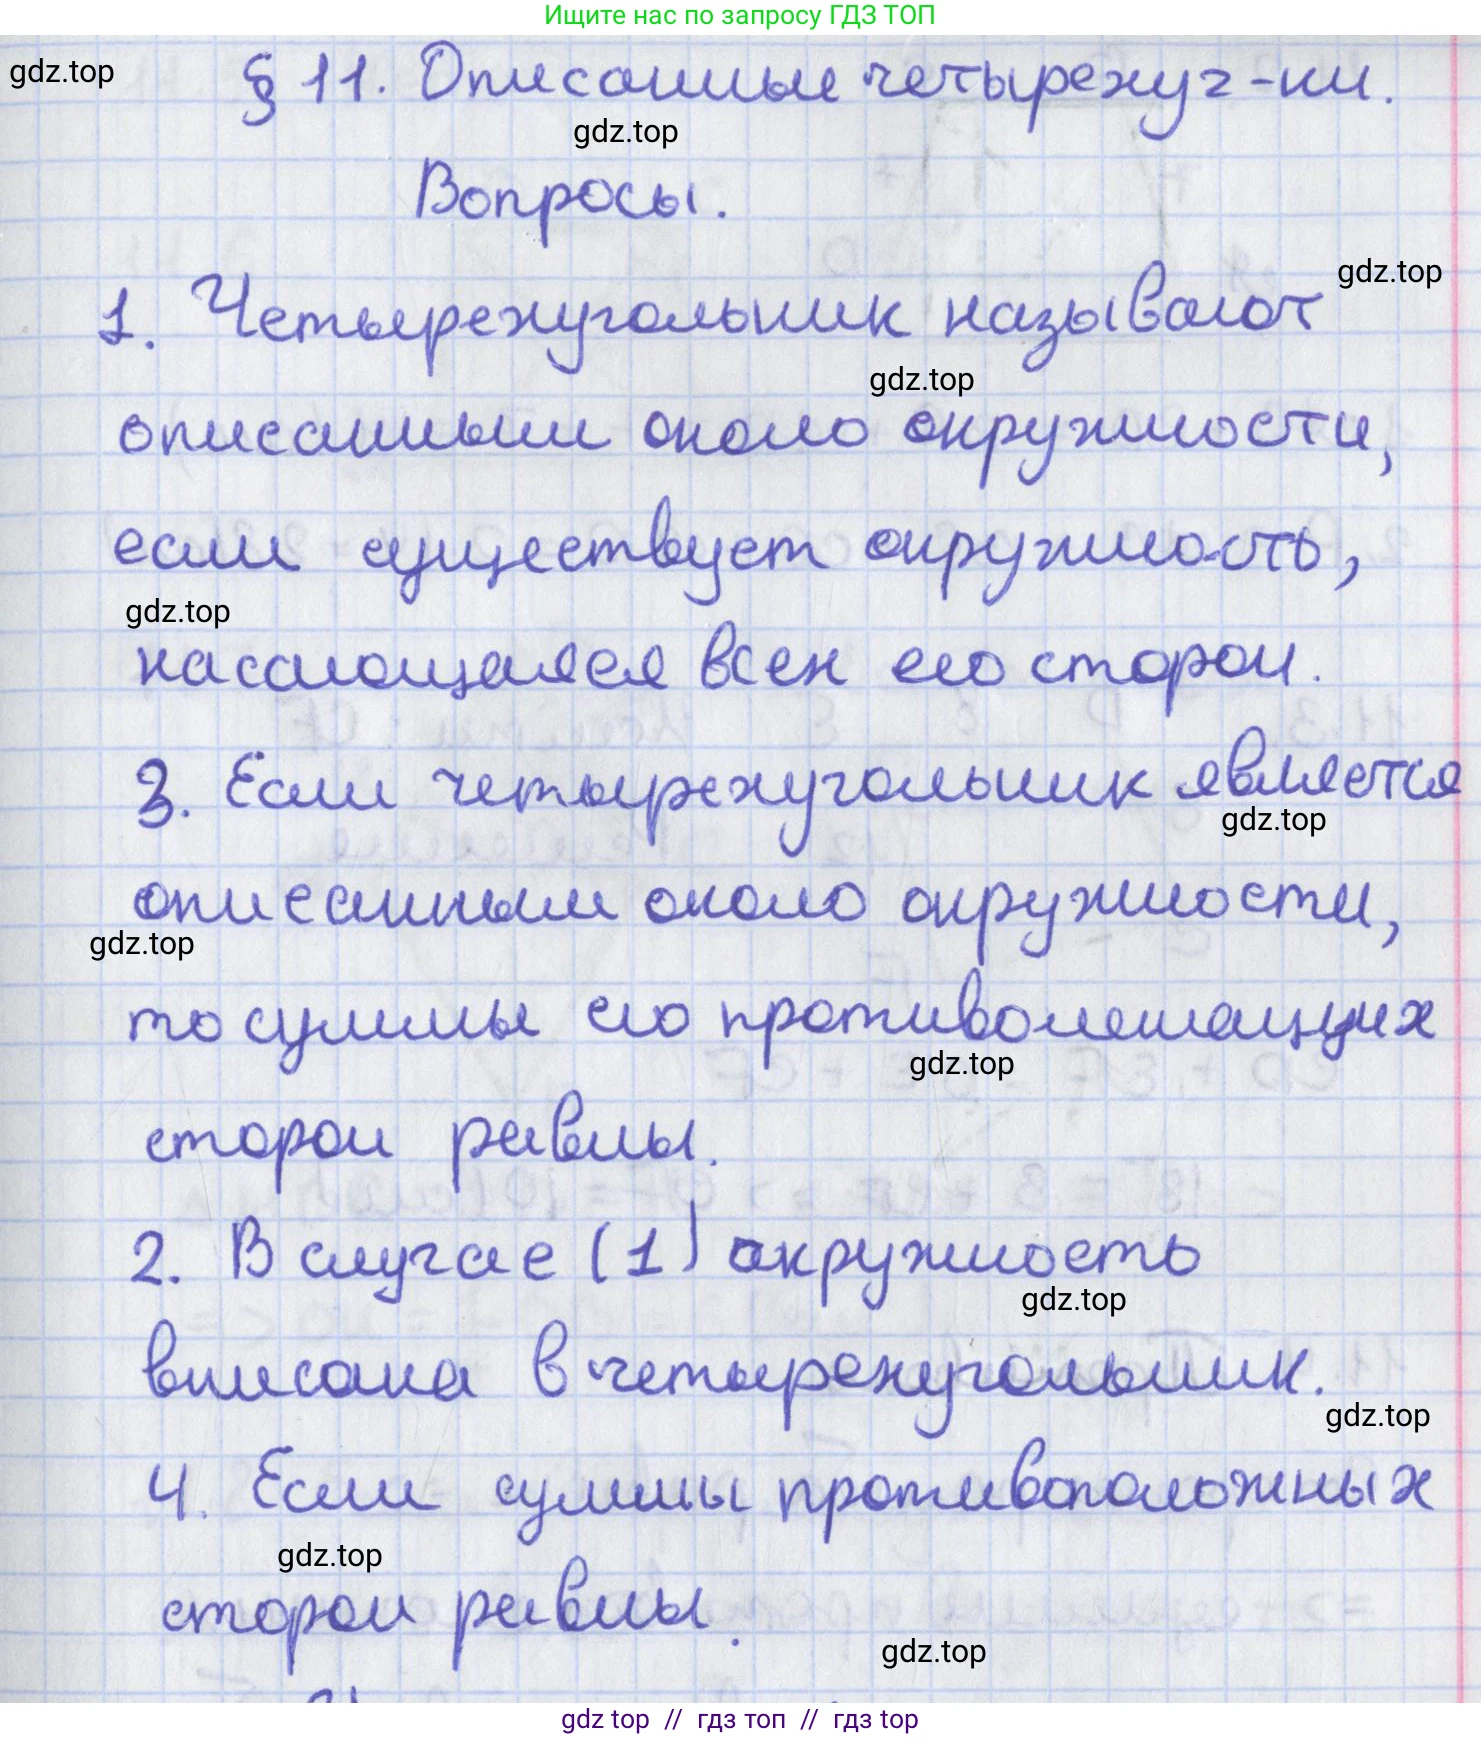 Ищите нас по запросу ГДЗ ТОП
gdz.top
§ 11. Описанные четырехуг-ки.
gdz.top
Вопросы.
gdz.top
1. Четырехугольник называют
gdz.top
описанным около окружности,
если существует окружность,
gdz.top
касающаяся всех его сторон.
3. Если четырехугольник является
gdz.top
описанным около окружности,
gdz.top
то суммы его противолежащих
gdz.top
сторон равны.
2. В случае (1) окружность
gdz.top
вписана в четырехугольник.
gdz.top
4. Если суммы противоположных
gdz.top
сторон равны.
gdz.top
gdz top // гдз топ // гдз top